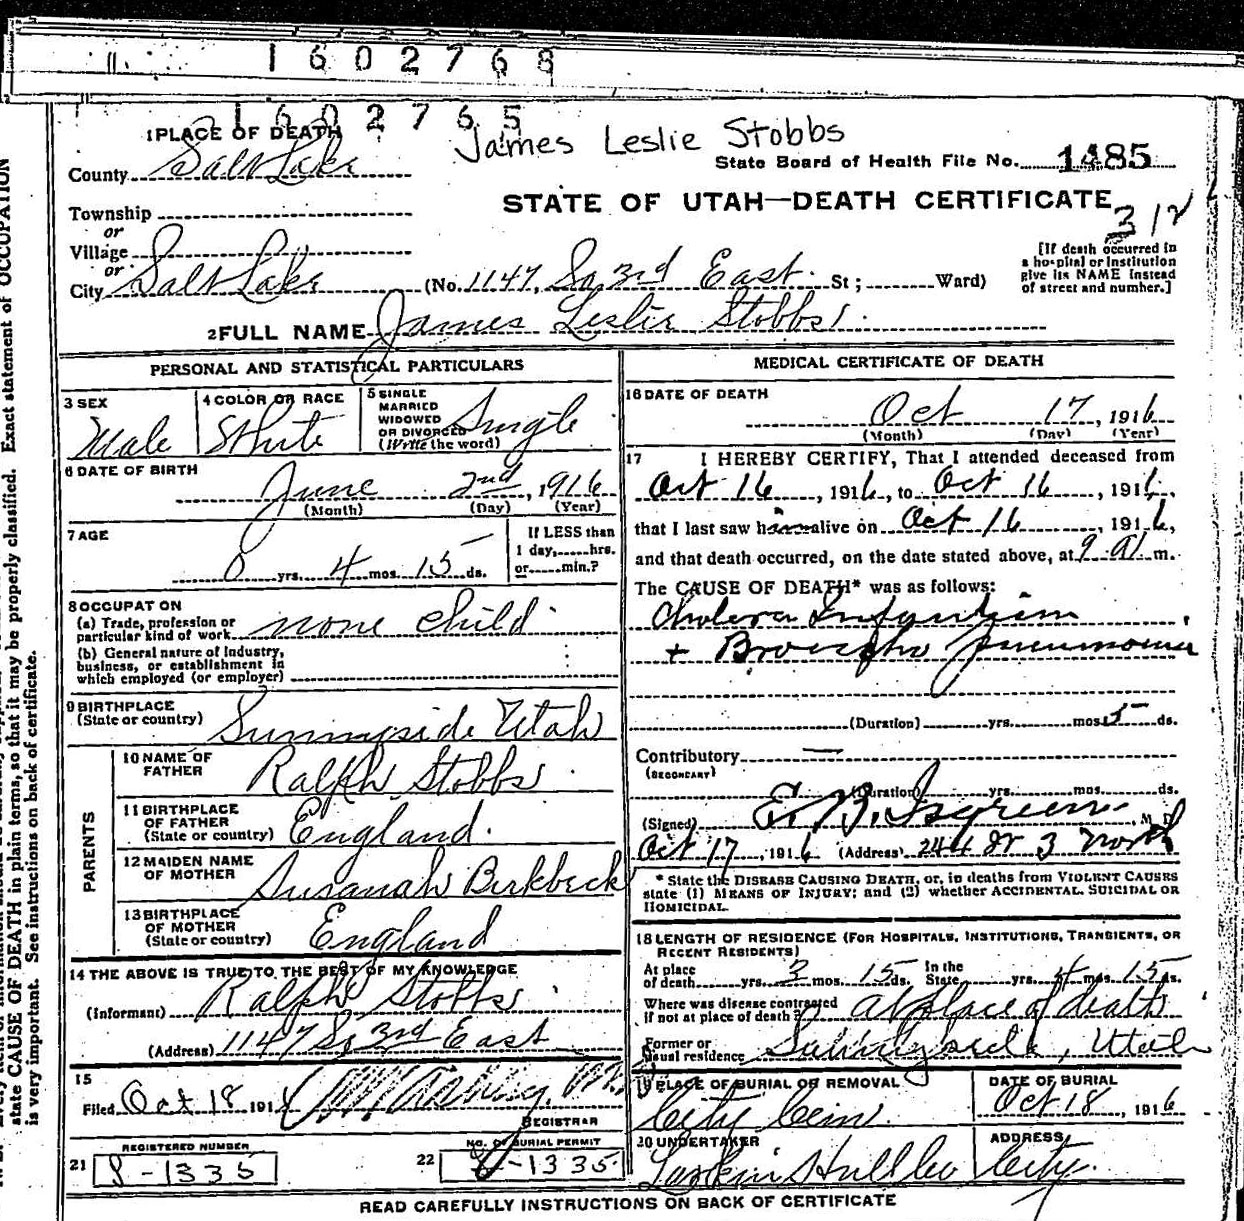 1602768
1602765
James Leslie Stobbs
1 PLACE OF DEATH
State Board of Health File No. 1485
County Salt Lake
STATE OF UTAH—DEATH CERTIFICATE
312
Township
or
Village
or
City Salt Lake (No. 1147, So. 3rd East St; Ward)
[If death occurred in
a hospital or institution
give its NAME instead
of street and number.]
2 FULL NAME James Leslie Stobbs
PERSONAL AND STATISTICAL PARTICULARS
3 SEX
Male
4 COLOR OR RACE
White
5 SINGLE
MARRIED
WIDOWED
OR DIVORCED
(Write the word)
Single
6 DATE OF BIRTH
June 2nd, 1916
(Month) (Day) (Year)
7 AGE
0 yrs. 4 mos. 15 ds.
If LESS than
1 day, hrs.
or min.?
8 OCCUPATION
(a) Trade, profession or
particular kind of work none child
(b) General nature of Industry,
business, or establishment in
which employed (or employer)
9 BIRTHPLACE
(State or country) Sunnyside Utah
PARENTS
10 NAME OF
FATHER Ralph Stobbs
11 BIRTHPLACE
OF FATHER
(State or country) England.
12 MAIDEN NAME
OF MOTHER Susanah Birkbeck
13 BIRTHPLACE
OF MOTHER
(State or country) England
14 THE ABOVE IS TRUE TO THE BEST OF MY KNOWLEDGE
(Informant) Ralph Stobbs
(Address) 1147 So 3rd East
15
Filed Oct 18 1916
REGISTRAR
21 REGISTERED NUMBER
S-1335
22 NO. OF BURIAL PERMIT
S-1335
MEDICAL CERTIFICATE OF DEATH
16 DATE OF DEATH
Oct 17, 1916
(Month) (Day) (Year)
17 I HEREBY CERTIFY, That I attended deceased from
Oct 16, 1916, to Oct 16, 1916,
that I last saw him alive on Oct 16, 1916,
and that death occurred, on the date stated above, at 9 A m.
The CAUSE OF DEATH* was as follows:
Cholera Infantum
+ Broncho pneumonia
(Duration) yrs. mos. 5 ds.
Contributory —
(SECONDARY)
(Duration) yrs. mos. ds.
(Signed) E. B. Isgreen, M.D.
Oct 17, 1916 (Address) 244 W 3 North
* State the DISEASE CAUSING DEATH, or, in deaths from VIOLENT CAUSES
state (1) MEANS OF INJURY; and (2) whether ACCIDENTAL, SUICIDAL OR
HOMICIDAL.
18 LENGTH OF RESIDENCE (FOR HOSPITALS, INSTITUTIONS, TRANSIENTS, OR
RECENT RESIDENTS)
At place
of death yrs. 3 mos. 15 ds. In the
State yrs. 4 mos. 15 ds.
Where was disease contracted
if not at place of death? at place of death
Former or
usual residence Sunnyside, Utah
19 PLACE OF BURIAL OR REMOVAL
City Cem.
DATE OF BURIAL
Oct 18, 1916
20 UNDERTAKER
Larkin Hull Co
ADDRESS
City.
READ CAREFULLY INSTRUCTIONS ON BACK OF CERTIFICATE
state CAUSE OF DEATH in plain terms, so that it may be properly classified. Exact statement of OCCUPATION
is very important. See instructions on back of certificate.